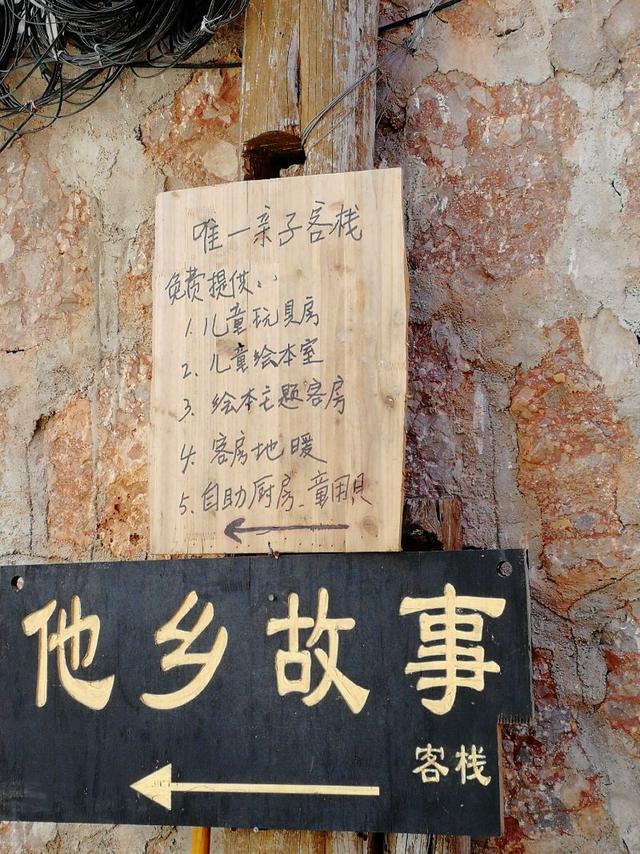 唯一亲子客栈
免费提供:
1. 儿童玩具房
2. 儿童绘本室
3. 绘本主题客房
4. 客房地暖
5. 自助厨房、童用具
他乡故事
客栈